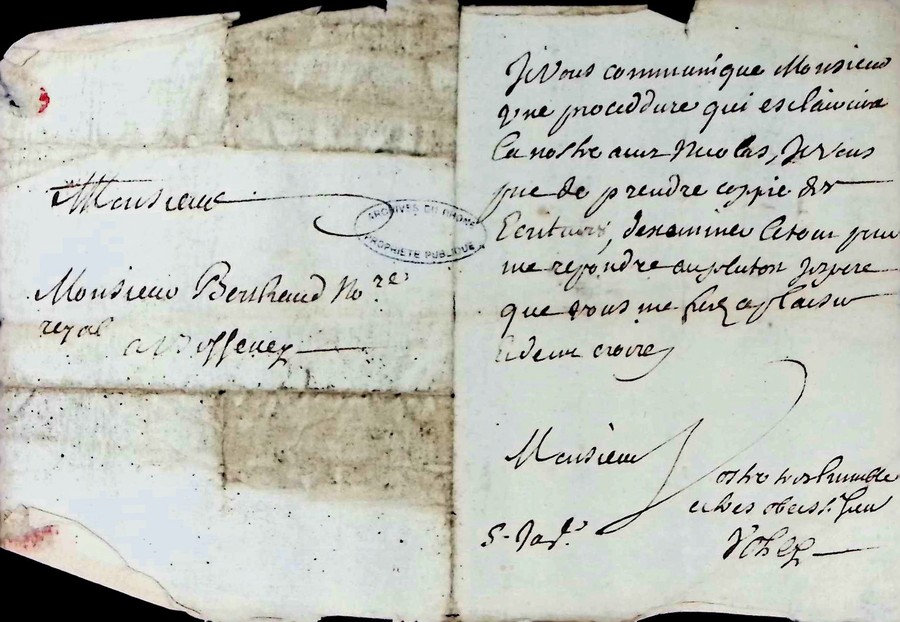 Monsieur
Monsieur Berthaud No.re
royal
a
ARCHIVES DU RHONE
PROPRIETE PUBLIQUE
Je vous communique Monsieur
vne proceddure qui esclaircira
la nostre aux Nicolas, Je vous
prie de prendre coppie des
Ecritures, dexaminer le tout pour
me repondre au plutost Jespere
que vous me ferez ce plaisir
& de me croire
Monsieur
Vostre tres humble
et tres obeiss.t